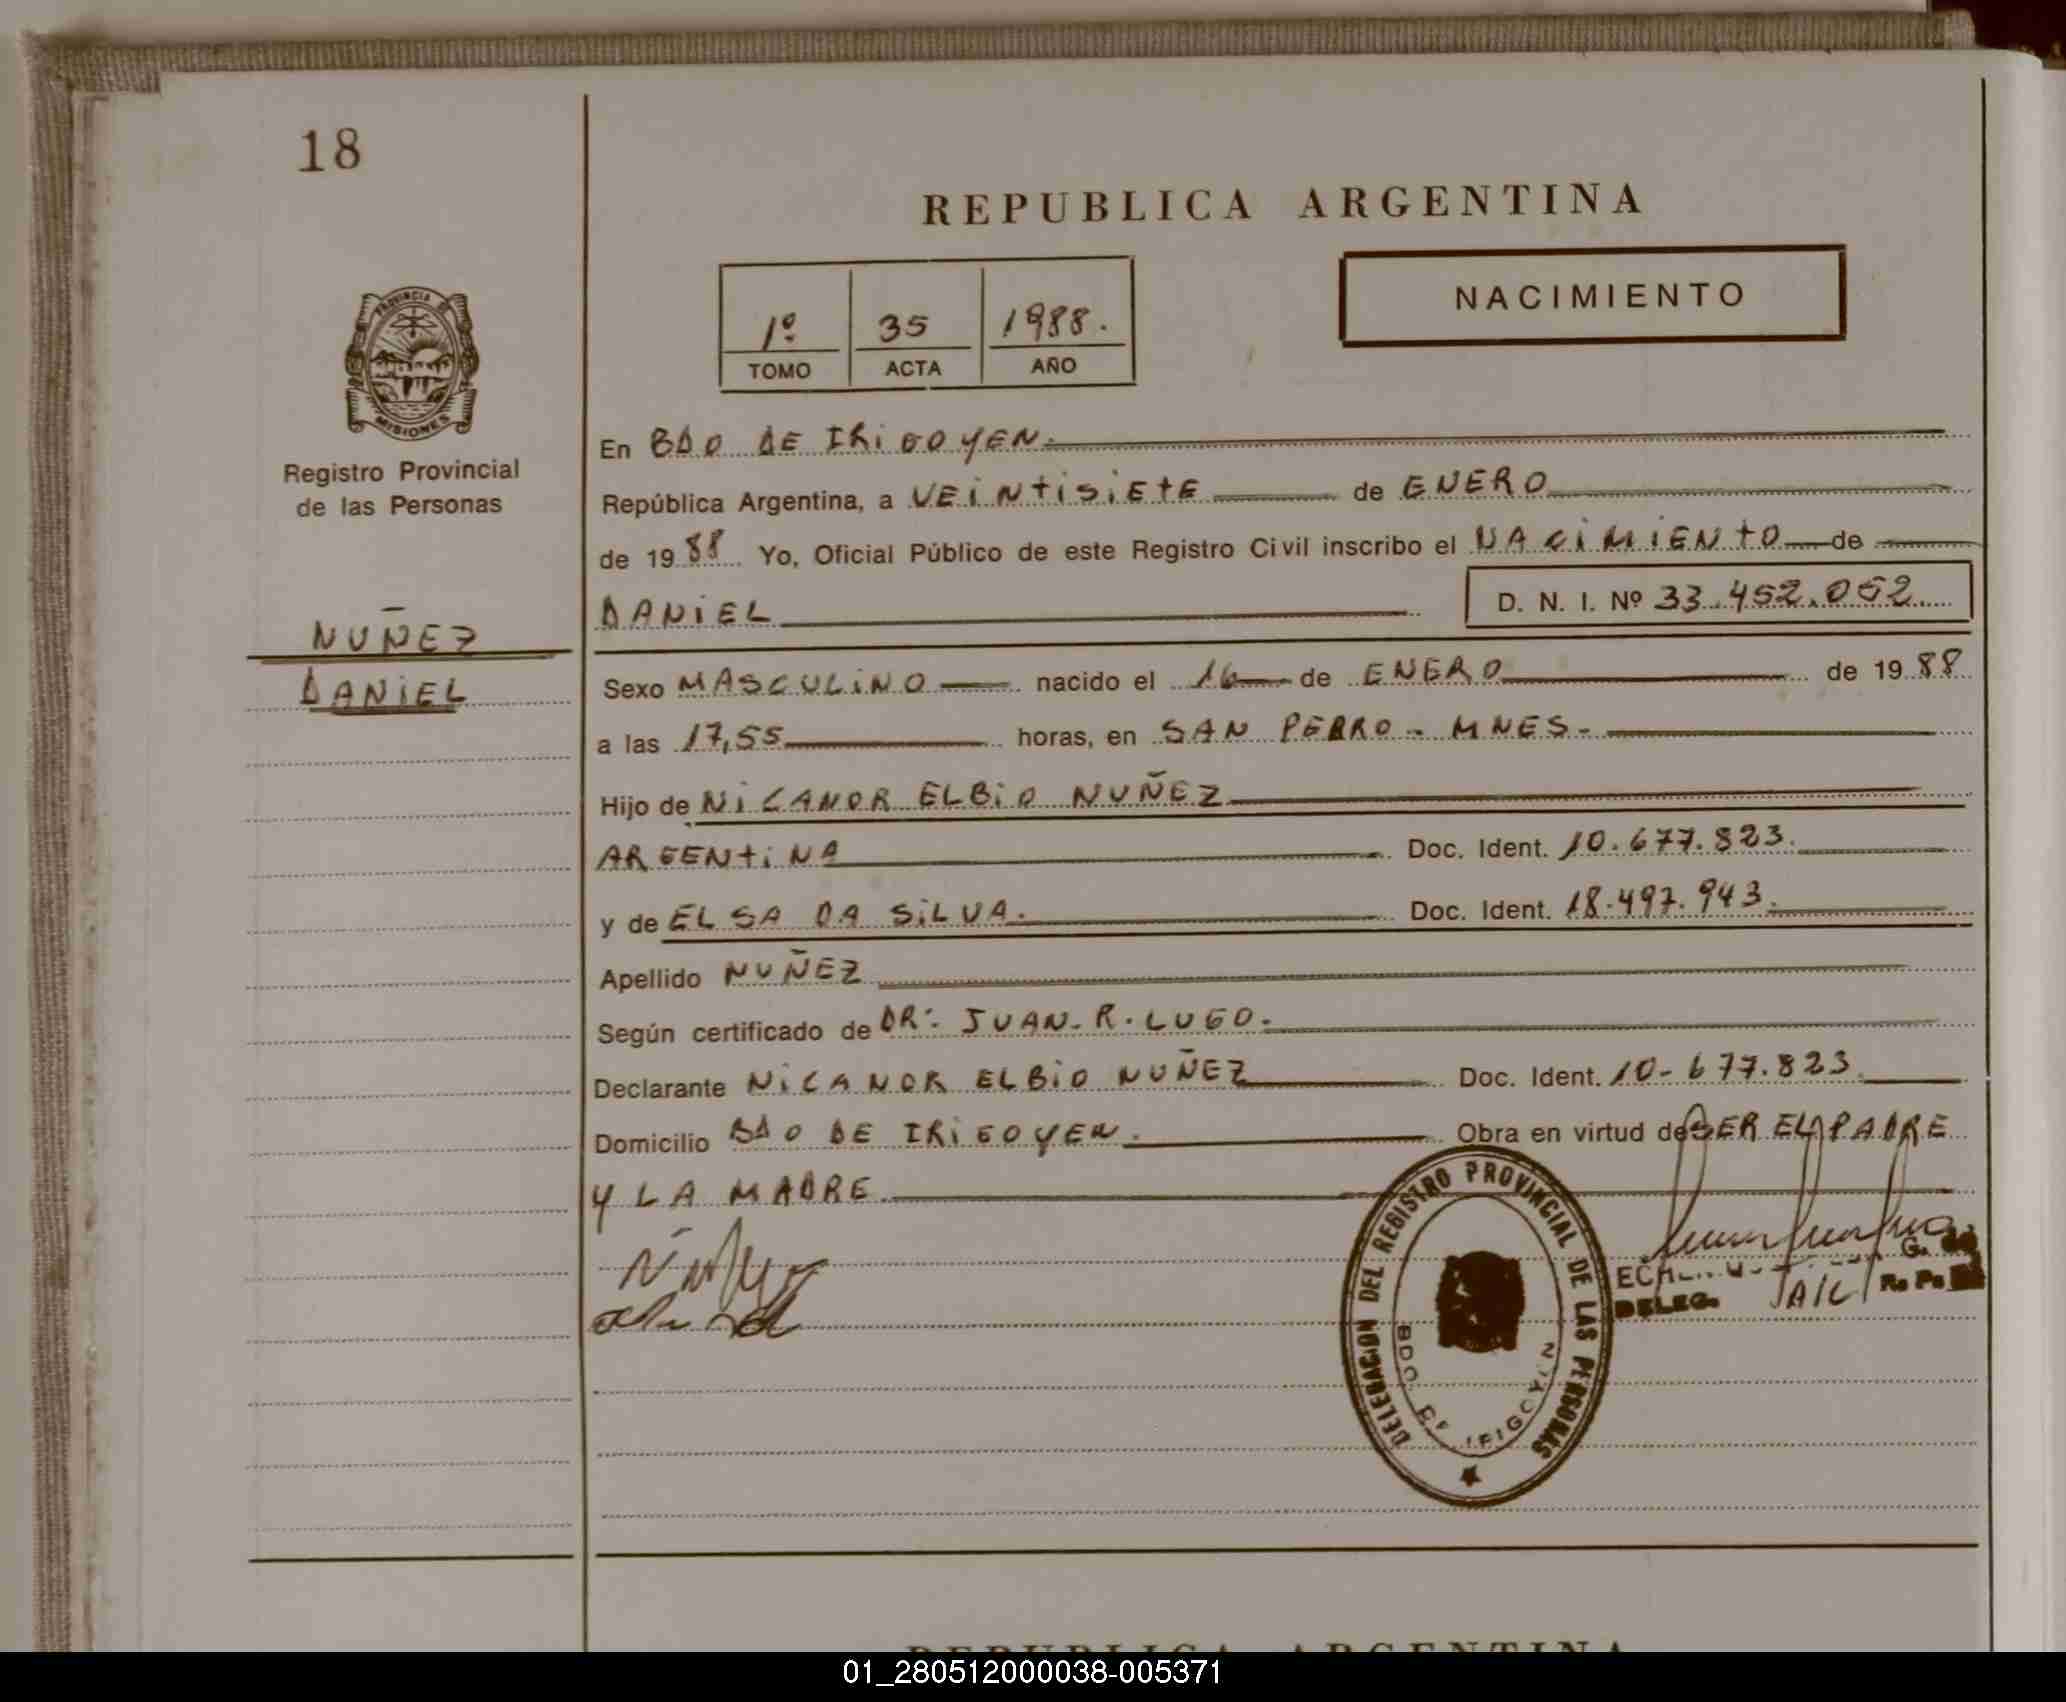 18
REPUBLICA ARGENTINA
NACIMIENTO
1º 35 1988.
TOMO ACTA AÑO
PROVINCIA DE
MISIONES
Registro Provincial
de las Personas
NUÑEZ
DANIEL
En BDO DE IRIGOYEN.
República Argentina, a VEINTISIETE de ENERO
de 1988 Yo, Oficial Público de este Registro Civil inscribo el NACIMIENTO de
DANIEL D. N. I. Nº 33.452.052.
Sexo MASCULINO nacido el 16 de ENERO de 1988
a las 17,55 horas, en SAN PEDRO - MNES-
Hijo de NICANOR ELBIO NUÑEZ
ARGENTINA Doc. Ident. 10.677.823.
y de ELSA DA SILVA. Doc. Ident. 18.497.943.
Apellido NUÑEZ
Según certificado de DR: JUAN-R.LUGO.
Declarante NICANOR ELBIO NUÑEZ Doc. Ident. 10-677.823.
Domicilio BDO DE IRIGOYEN. Obra en virtud de SER EL PADRE
Y LA MADRE.
DELEGACION DEL REGISTRO PROVINCIAL DE LAS PERSONAS
BDO. DE IRIGOYEN
DELEG. R. P.
REPUBLICA ARGENTINA
01_280512000038-005371